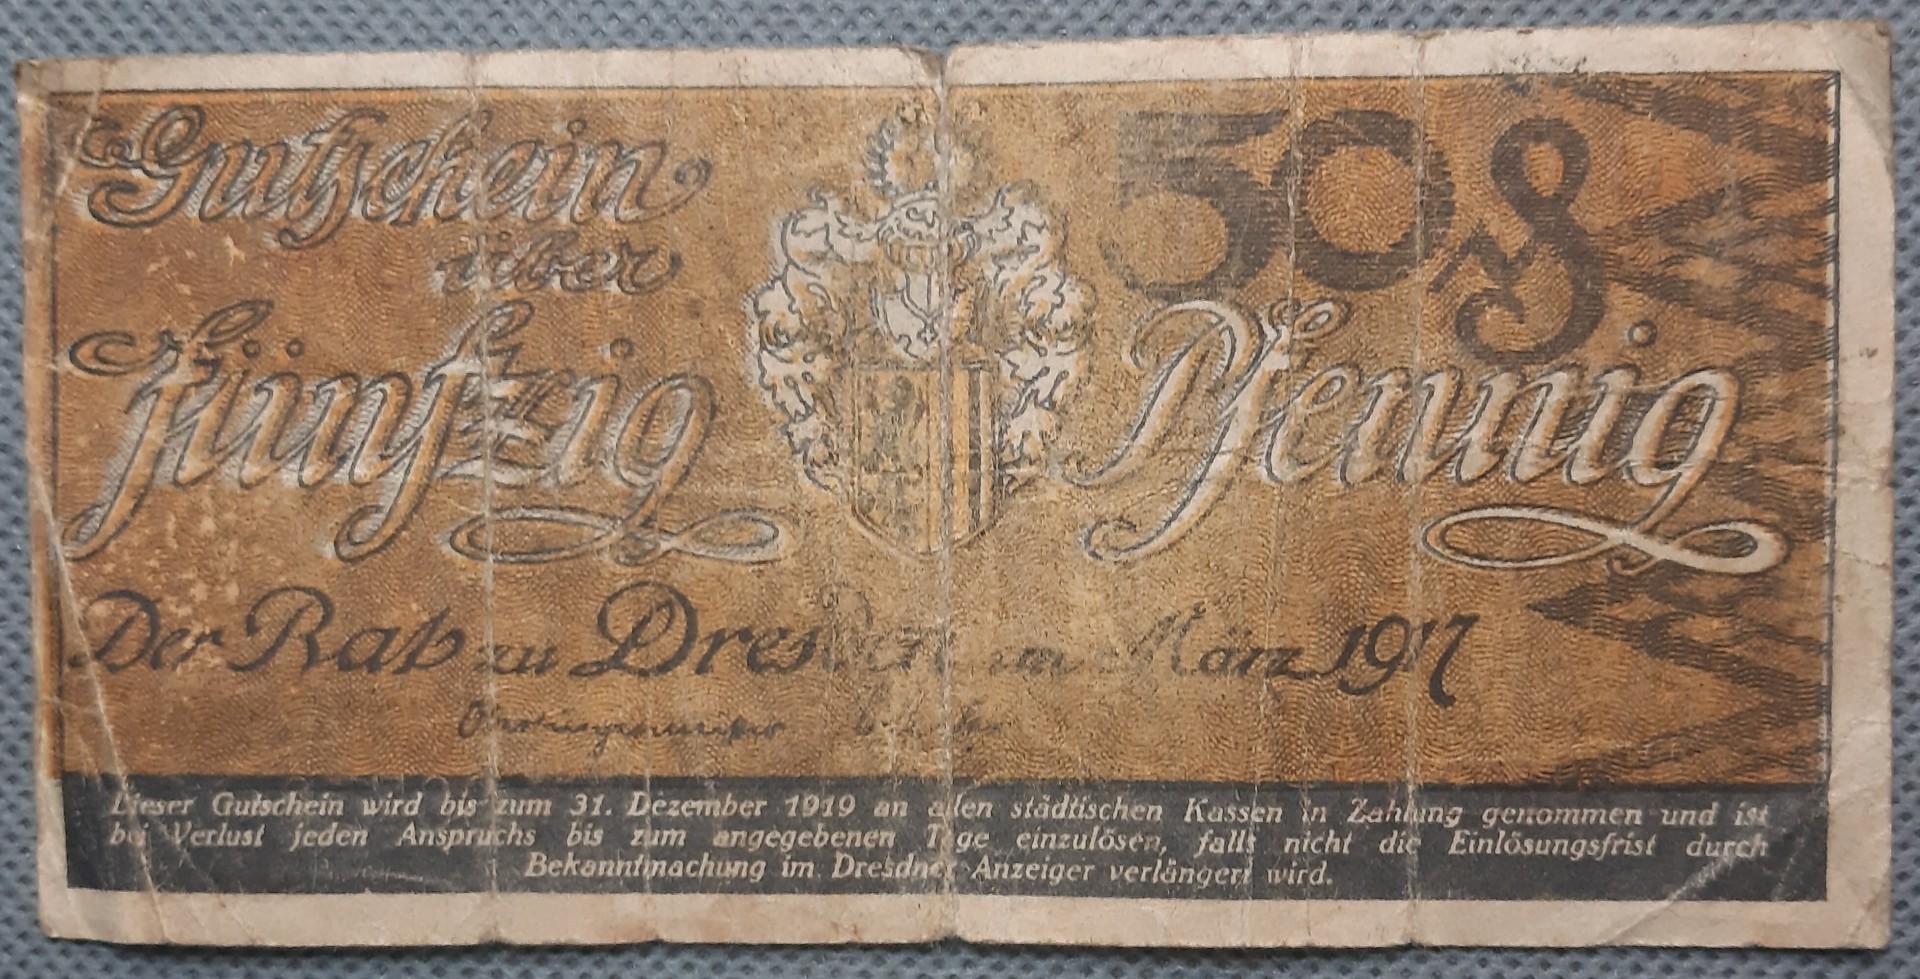 Gutschein
über
Fünfzig
50 ₰
Pfennig
Der Rat zu Dresden im März 1917
Oberbürgermeister
Dieser Gutschein wird bis zum 31. Dezember 1919 an allen städtischen Kassen in Zahlung genommen und ist
bei Verlust jeden Anspruchs bis zum angegebenen Tage einzulösen, falls nicht die Einlösungsfrist durch
Bekanntmachung im Dresdner Anzeiger verlängert wird.